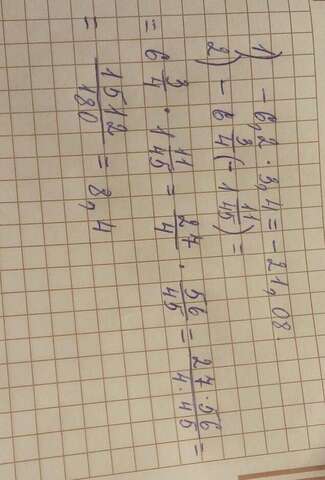 1) - 6,2 · 3,4 = - 21,08.
2) - 6 3/4 (- 1 11/45) =
= 6 3/4 · 1 11/45 = 27/4 · 56/45 = 27·56/4·45 =
= 1512/180 = 8,4